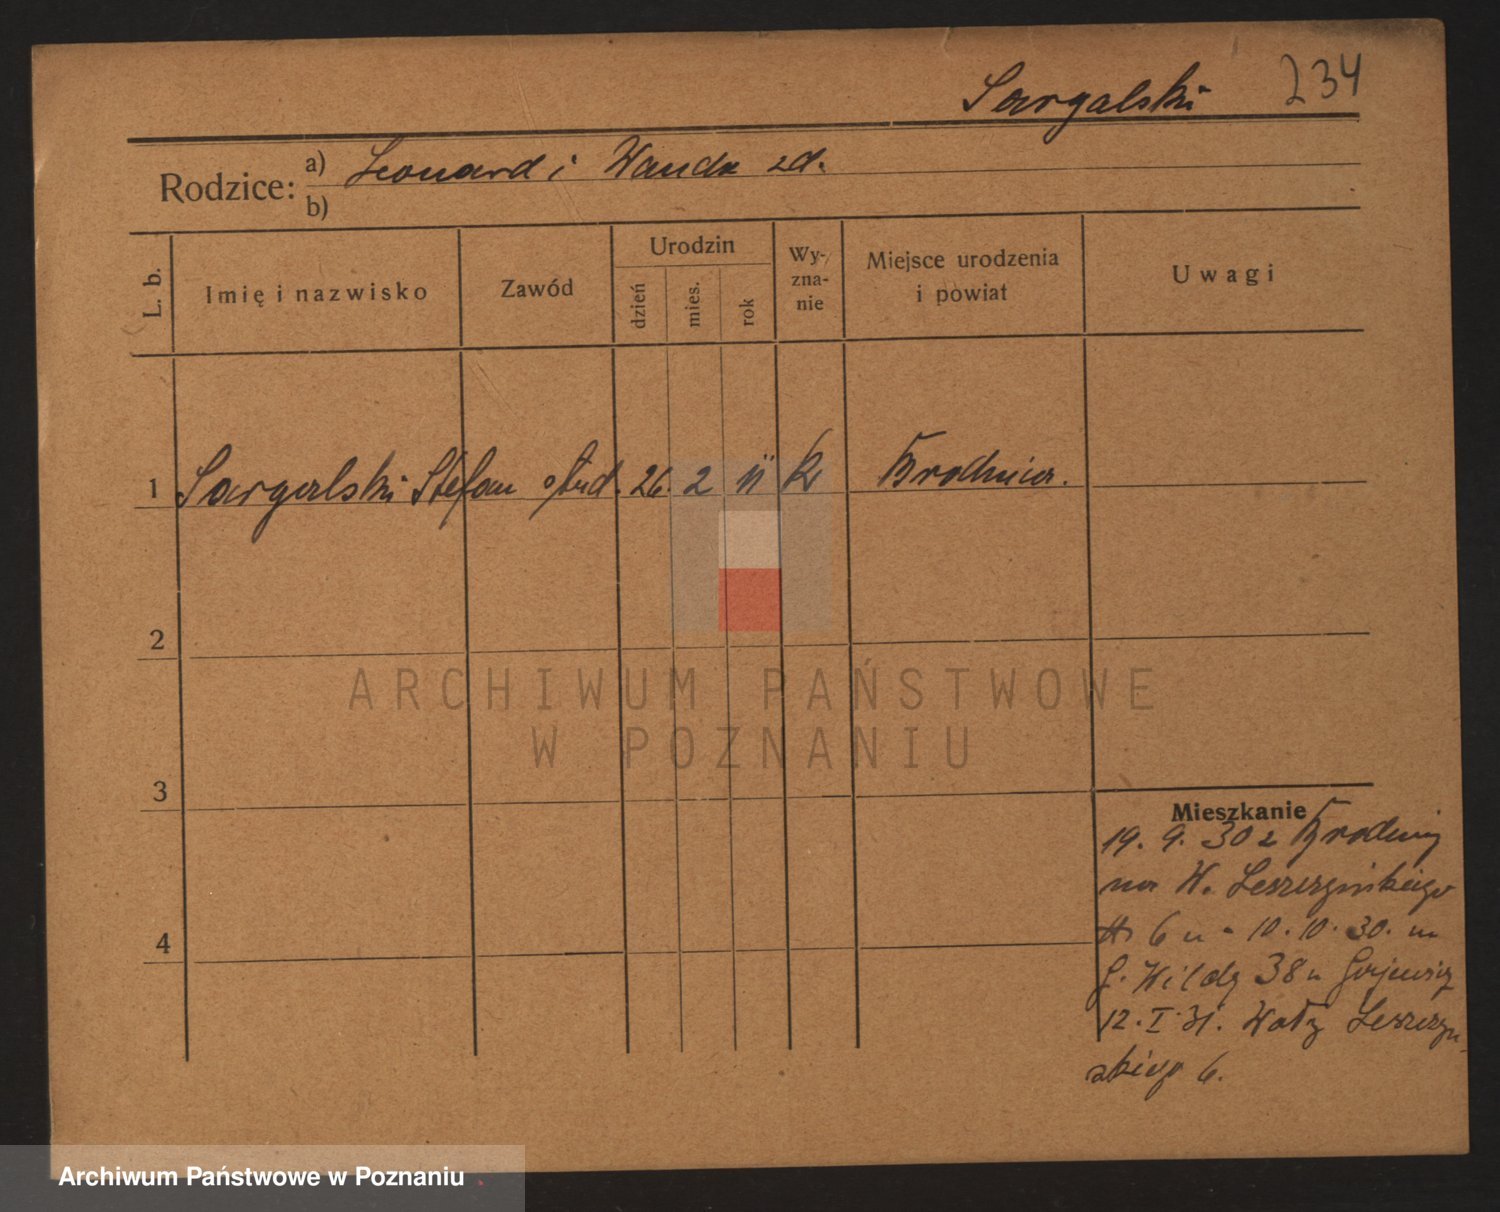 Sargalski 234
Rodzice: a) Leonard i Wanda zd.
b)
L. b. Imię i nazwisko Zawód Urodzin dzień mies. rok Wy-zna-nie Miejsce urodzenia i powiat Uwagi
1 Sargalski Stefan stud. 26. 2 11 k Brodnica.
2
3
4
Mieszkanie
19. 9. 30 z Brodnicy
na W. Leszczyńskiego
6 u - 10. 10. 30. na
G. Wildę 38 u Gajewicz
12. I. 31. Wały Leszczyń-
skiego 6.
ARCHIWUM PAŃSTWOWE
W POZNANIU
Archiwum Państwowe w Poznaniu